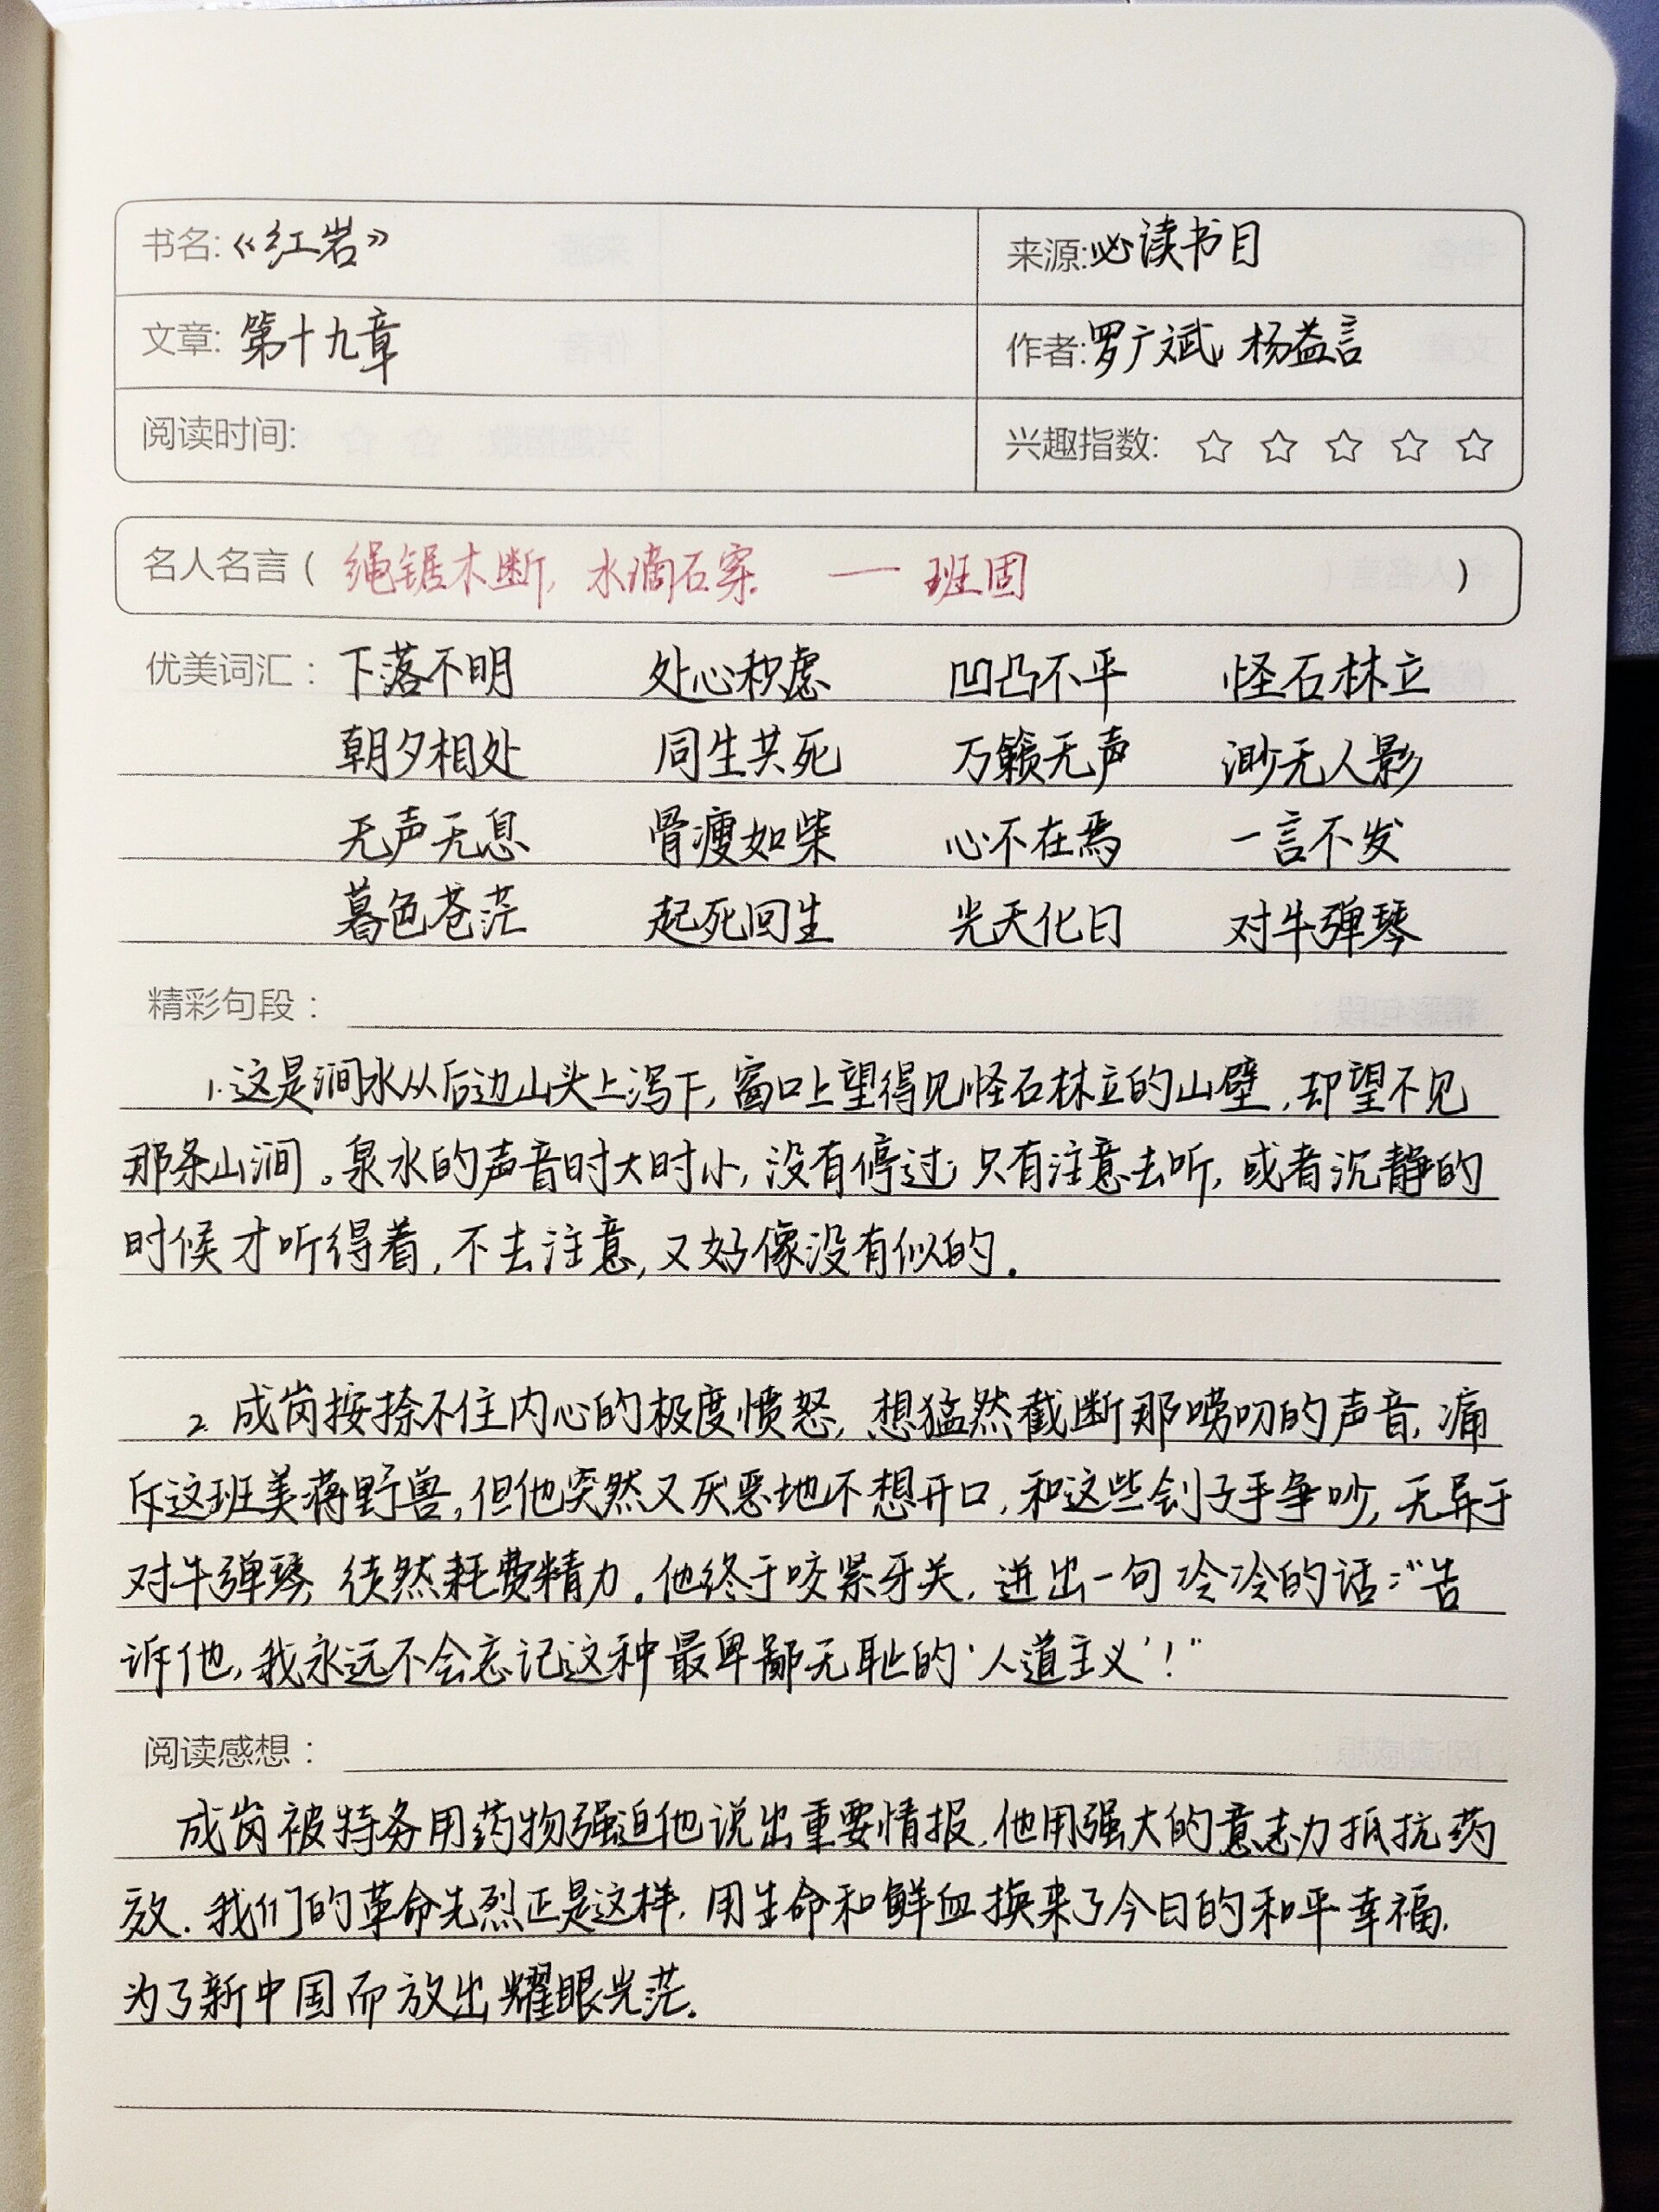 书名:《红岩》 来源:必读书目
文章: 第十九章 作者:罗广斌, 杨益言
阅读时间: 兴趣指数: ☆ ☆ ☆ ☆ ☆
名人名言( 绳锯木断, 水滴石穿. —— 班固 )
优美词汇: 下落不明 处心积虑 凹凸不平 怪石林立
朝夕相处 同生共死 万籁无声 渺无人影
无声无息 骨瘦如柴 心不在焉 一言不发
暮色苍茫 起死回生 光天化日 对牛弹琴
精彩句段:
1.这是涧水从后边山头上泻下,窗口上望得见怪石林立的山壁,却望不见
那条山涧。泉水的声音时大时小,没有停过;只有注意去听,或者沉静的
时候才听得着,不去注意,又好像没有似的.
2.成岗按捺不住内心的极度愤怒,想猛然截断那唠叨的声音,痛
斥这班美蒋野兽,但他突然又厌恶地不想开口,和这些刽子手争吵,无异于
对牛弹琴,徒然耗费精力。他终于咬紧牙关,迸出一句冷冷的话:“告
诉他,我永远不会忘记这种最卑鄙无耻的‘人道主义’!”
阅读感想:
成岗被特务用药物强迫他说出重要情报,他用强大的意志力抵抗药
效.我们的革命先烈正是这样,用生命和鲜血换来了今日的和平幸福.
为了新中国而放出耀眼光茫.